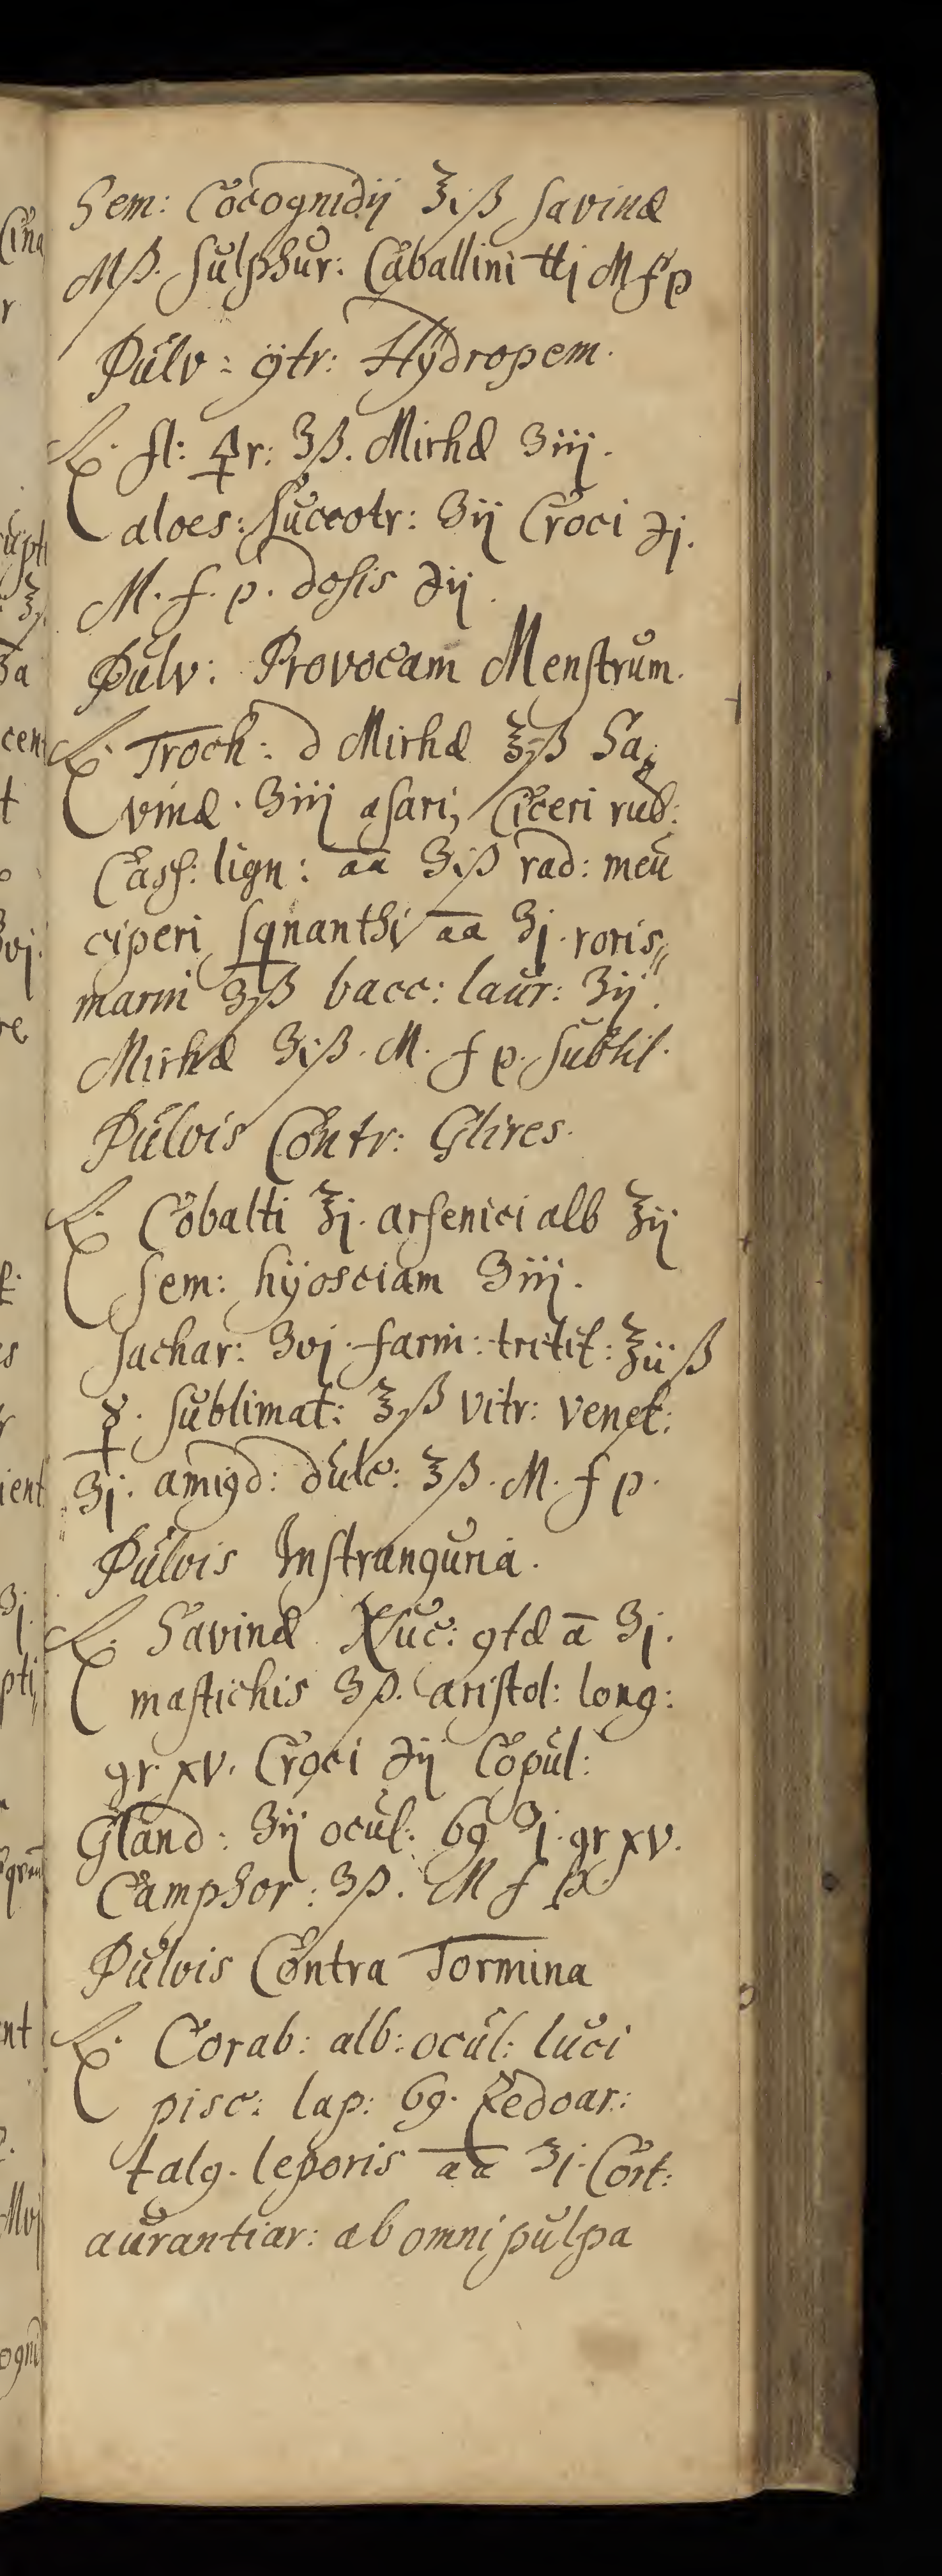 Sem: Cocognidij ℥iß Savinæ
Mß. Sulphur: Caballini ℔j M f p
Pulv: ꝯtr: Hÿdropem.
℞. fl: 🜍r: ʒß. Mirhæ ʒiij.
aloes: Succotr: ʒij Croci ℈j.
M. f. p. dosis ℈ij.
Pulv: Provocam Menstrum.
℞. Troch: d Mirhæ ℥ß Sa,,
vinæ. ʒiiij asari, Ciceri rud:
Cass: lign: aa ʒiß rad: meu
ciperi sqnanthi aa ʒj. roris,,
marni ʒß bacc: laur: ʒij.
Mirhæ ʒiß. M. f p. Subtil.
Pulvis Contr: Glires.
℞. Cobalti ℥j. arsenici alb ℥ij
Sem: hÿosciam ʒiij.
Sachar: ʒvj. farin: tritic: ℥iiß
☿. Sublimat: ℥ß vitr: venet:
ʒj. amigd: dulc: ℥ß. M. f p.
Pulvis Instranguria.
℞. Savinæ Nuc: ꝯtæ ā ʒj.
mastichis ʒß. aristol: long:
gr. xv. Croci ℈ij Copul:
Gland: ʒij ocul: 69 ʒj. gr xv.
Camphor: ʒß. M f p.
Pulvis Contra Tormina
℞. Corab: alb: ocul: luci
pisc: lap: 69. Zedoar:
talg. leporis aa ʒj. Cort:
aurantiar: ab omni pulpa